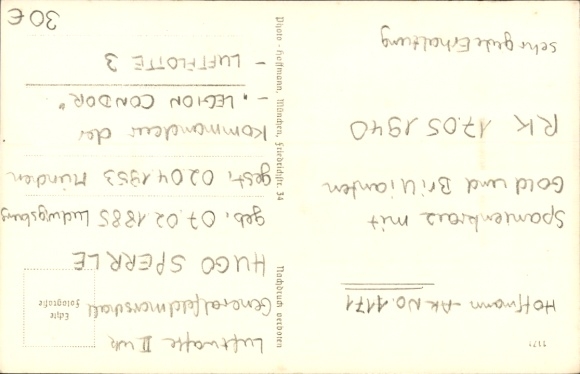 1171
Hoffmann - AK No. 1171
Spanienkreuz mit
Gold und Brillianten
RK 17.05.1940
sehr gute Erhaltung
Nachdruck verboten
Photo-Hoffmann, München, Friedrichstr. 34
Echte
Fotografie
Luftwaffe II WK
Generalfeldmarschall
HUGO SPERRLE
geb. 07.02.1885 Ludwigsburg
gest. 02.04.1953 München
Kommandeur der
- "LEGION CONDOR"
- LUFTFLOTTE 3
30 €